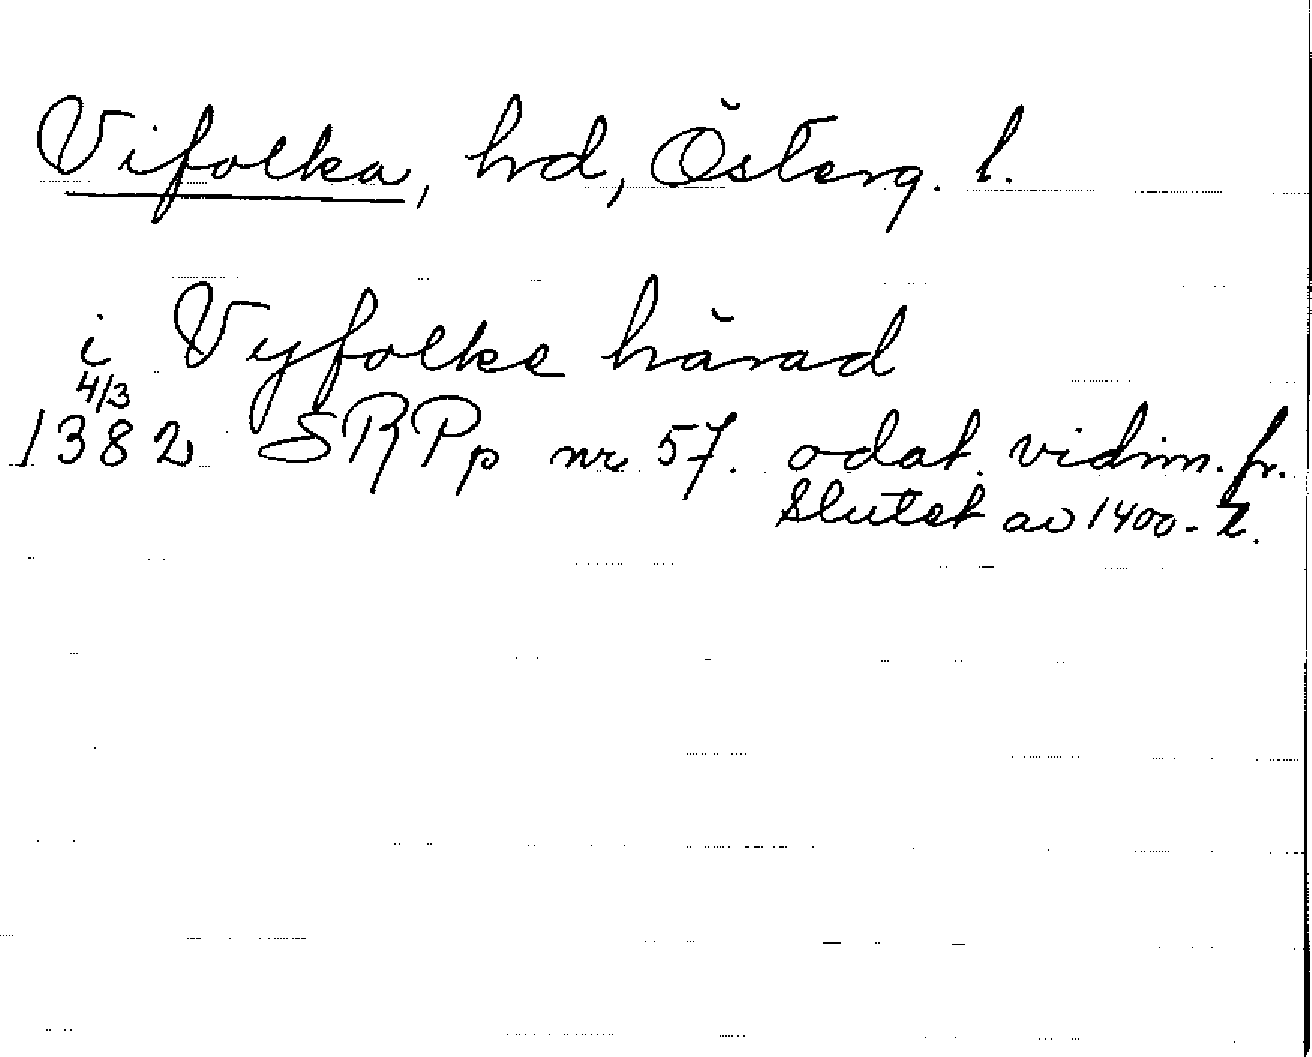 Vifolka, hd, Österg. l.
i Vyfolke härad
4/3
1382 SRPp nr 57. odat. vidim. fr.
slutet av 1400-t.